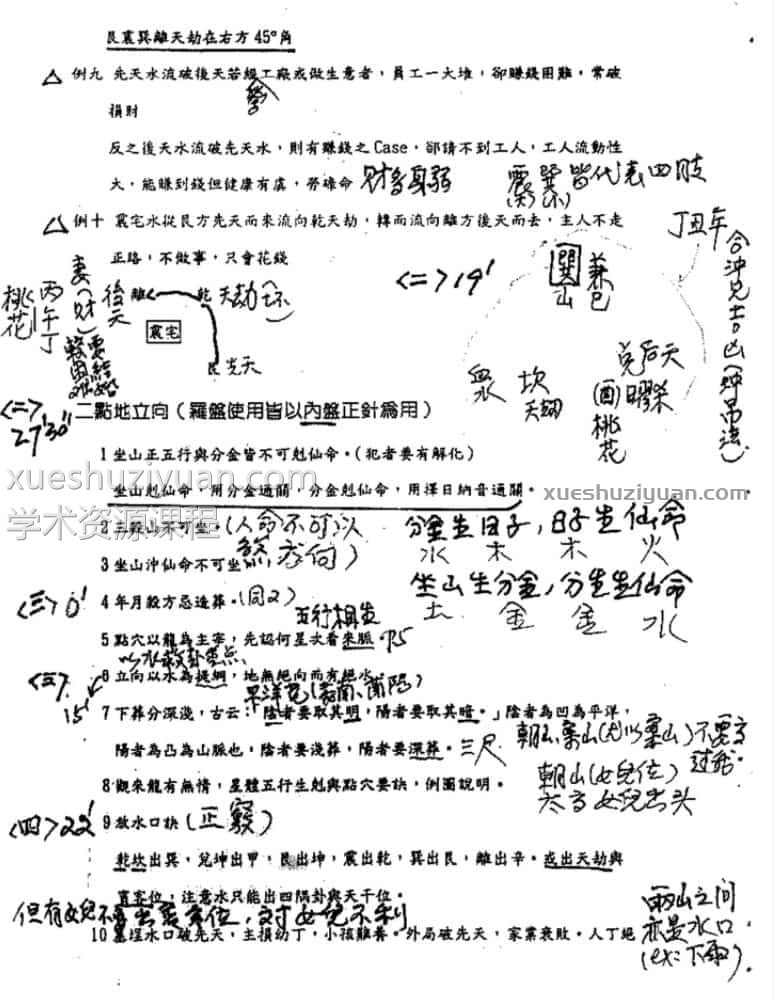 艮震巽離天劫在右方45°角
△ 例九 先天水流破後天若經工廠或做生意者,員工一大堆,卻賺錢困難,常破
營
損財
反之後天水流破先天水,則有賺錢之Case,卻請不到工人,工人流動性
大,能賺到錢但健康有虞,勞碌命 财多身弱 震巽皆代表四肢
△ 例十 震宅水從艮方先天而來流向乾天劫,轉而流向離方後天而去,主人不走
丁丑年
正路,不做事,只會花錢
合沖兄士凶(沖吊法)
<二>19'
巽山
兼巳
妻(财)
後天
離
乾 天劫
震宅
艮先天
丙午丁
桃花
坎
天劫
兌后天
(酉)曜殺
桃花
<二>
27'30"
二點地立向(羅盤使用皆以內盤正針為用)
1 坐山正五行與分金皆不可剋仙命。(犯者要有解化)
坐山剋仙命,用分金通關,分金剋仙命,用擇日納音通關。
xueshuziyuan.com
xueshuziyuan.com
学术资源课程
2 三殺山不可坐。(人命不可以
分金生日子,日子生仙命
水 木 木 火
3 坐山沖仙命不可坐
坐山生分金,分金生仙命
土 金 金 水
<三>0'
4 年月殺方忌造葬。(同2)
五行相生
5 點穴以龍為主宰,先認何星次看來脈
<三>
15'
6 立向以水為提綱,地無絕向而有絕水
7 下葬分深淺,古云:「陰者要取其明,陽者要取其暗。」陰者為凹為平洋,
陽者為凸為山脈也,陰者要淺葬,陽者要深葬。三尺
朝山案山(尤以案山)不要高
过於
8 觀來龍有無情,星體五行生剋與點穴要訣,例圖說明。
朝山(女兒位)
太高女兒出头
<四>22'
9 放水口訣(正竅)
乾坎出巽,兌坤出甲,艮出坤,震出乾,巽出艮,離出辛。或出天劫與
賓客位,注意水只能出四隅卦與天干位。
但有女兒不要出賓客位,对女兒不利
兩山之間
亦是水口
(ex:下雨)
10 墓埕水口破先天,主損幼丁,小孩難養。外局破先天,家業衰敗。人丁絕